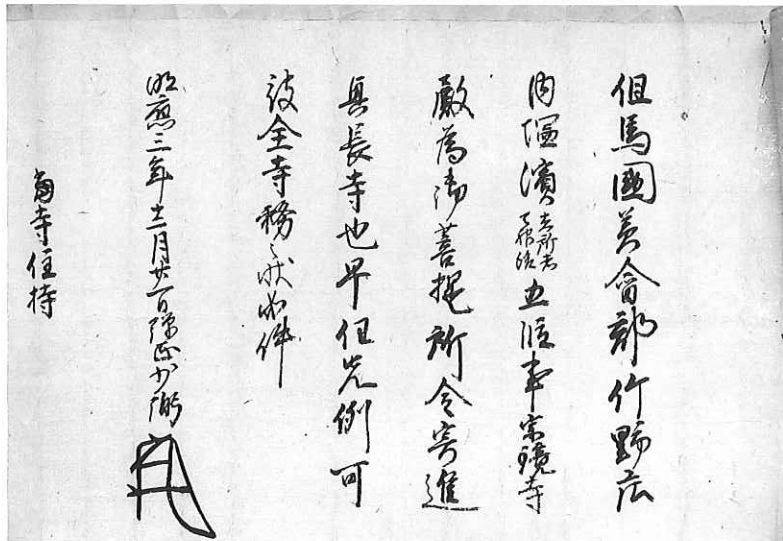 但馬國美含郡竹野庄
内塩濱在所者五段事宗鏡寺
殿為御菩提所令寄進
興長寺也早任先例可
被全寺務之状如件
明應三年十二月廿一日弾正少弼
當寺住持